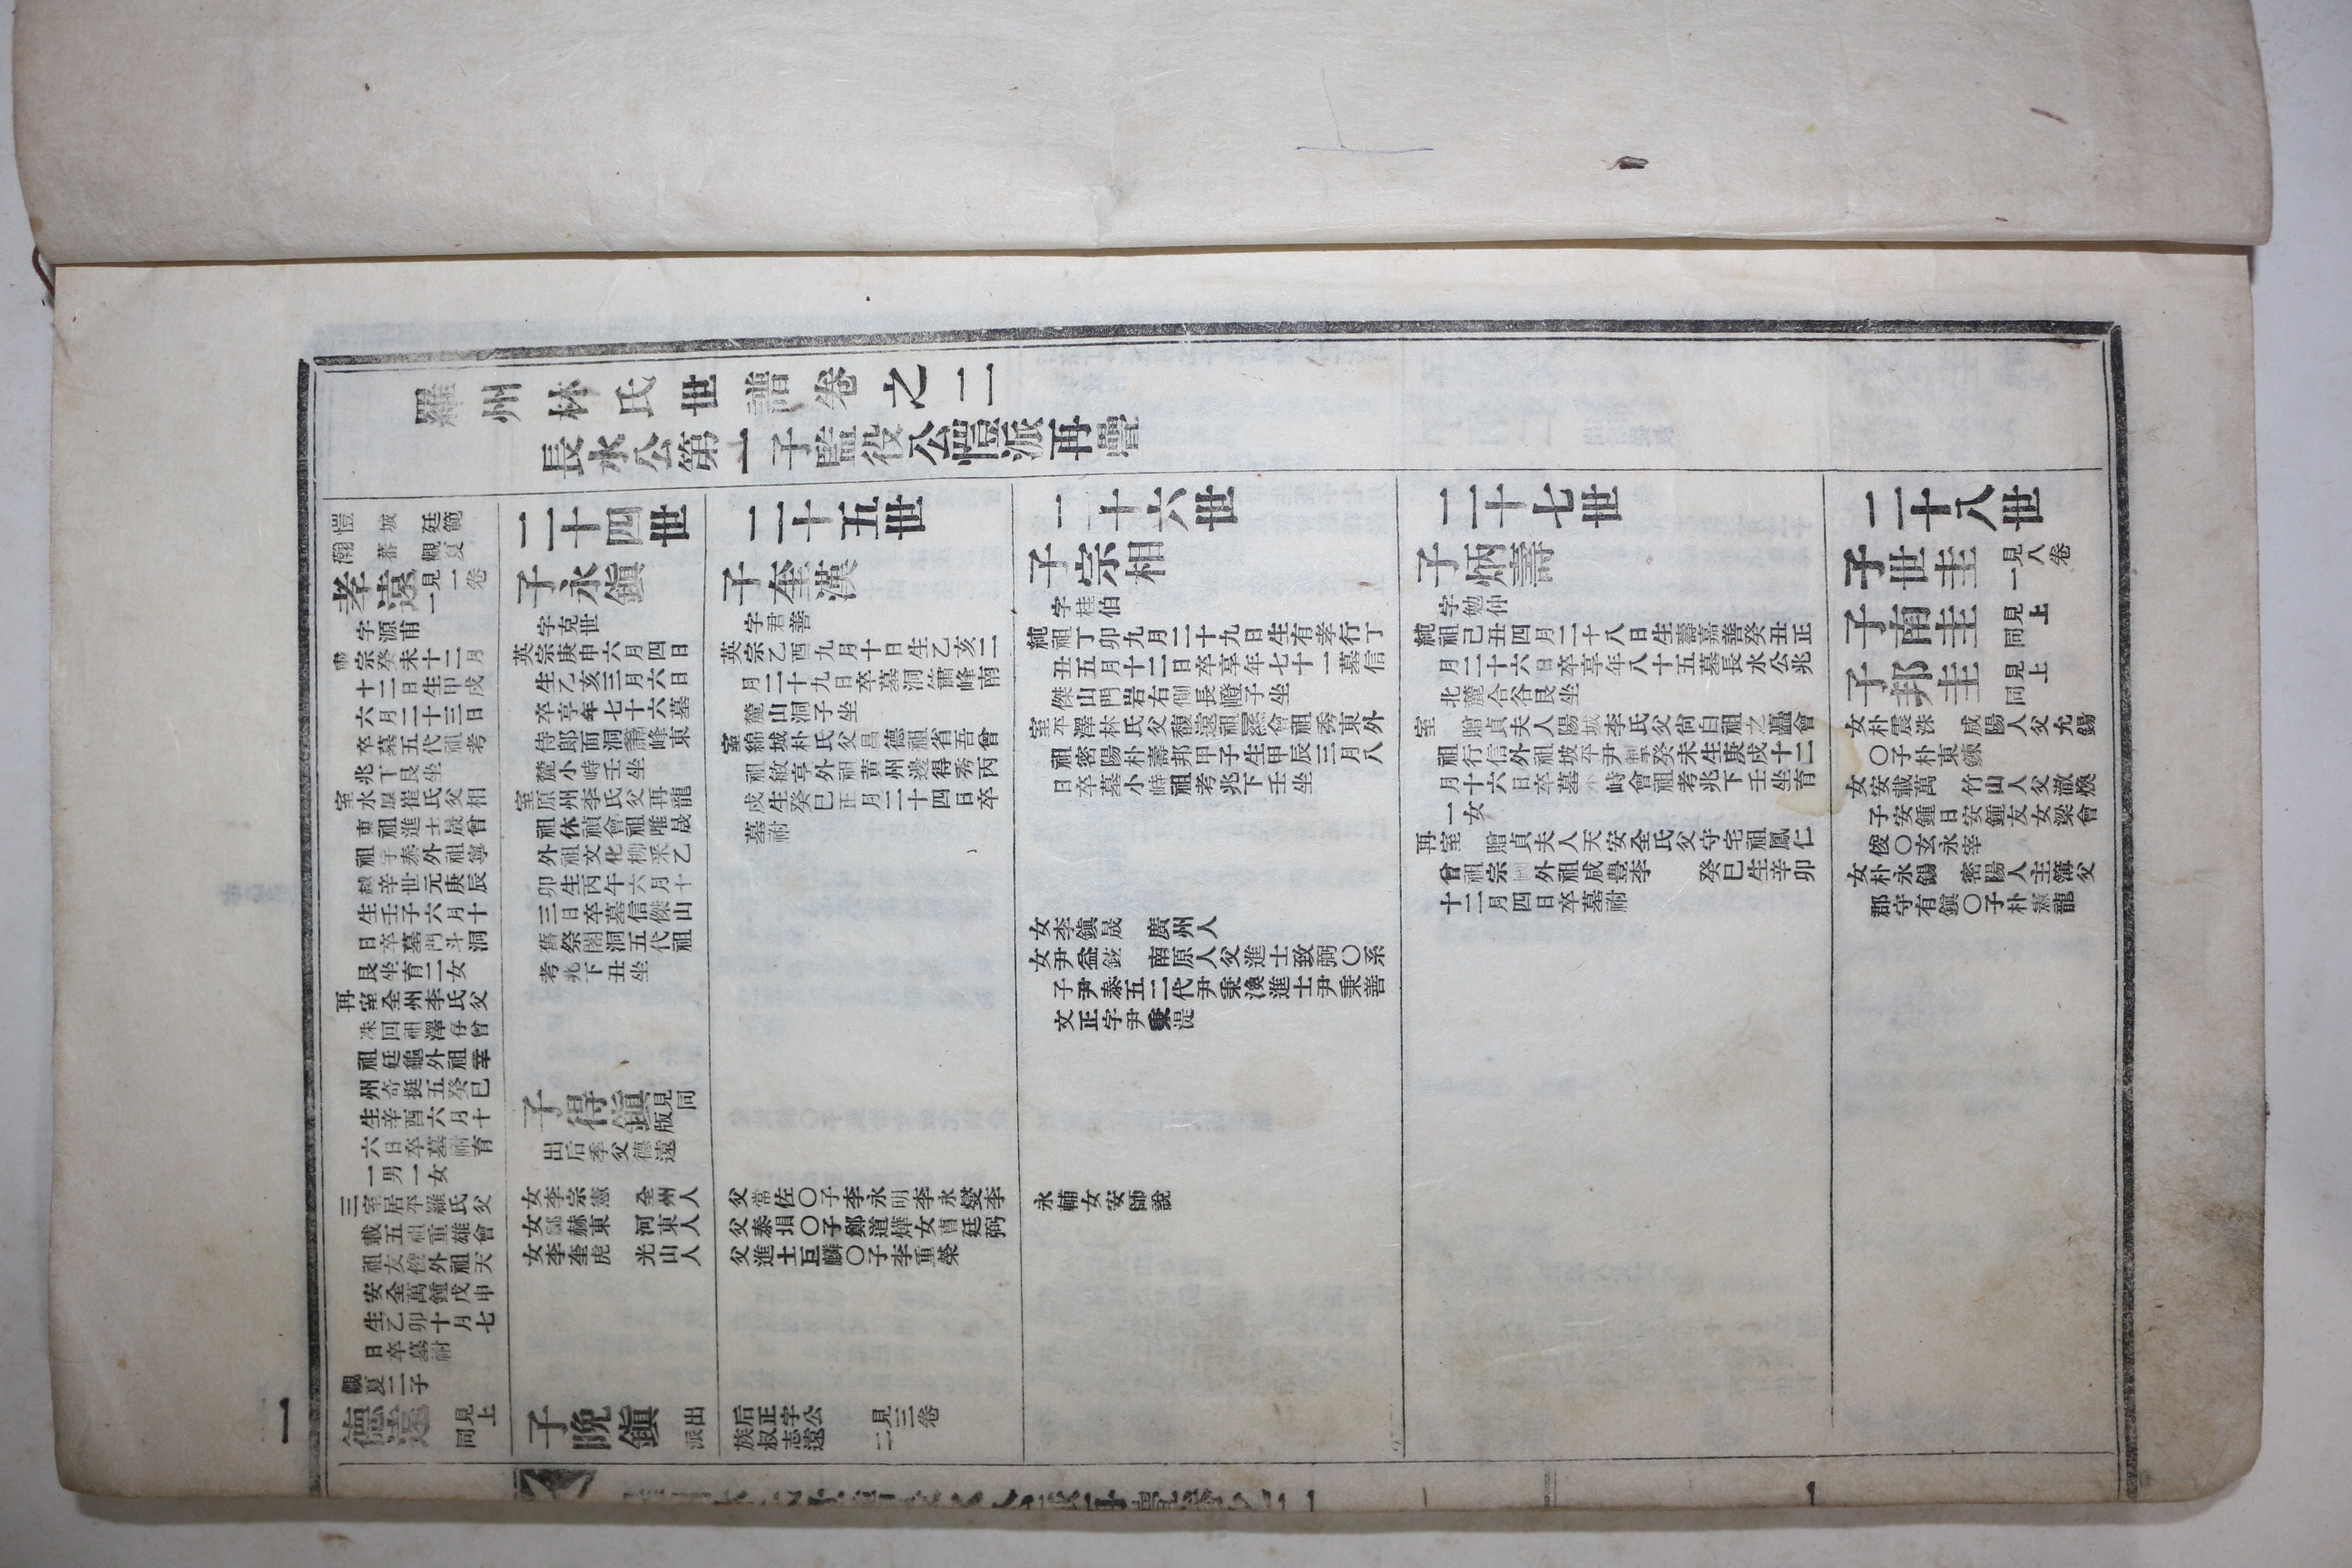 羅州林氏世譜卷之二
長水公第一子監役公愷派再疊
愷 城 廷範
瀚 蕃 觀夏
孝遠 見一卷一
字源甫
肅宗癸未十二月
十二日生甲戌
六月二十三日
卒墓五代祖考
兆下艮坐
室水原崔氏父相
東祖進士晟曾
祖宇泰外祖寧
越辛世元庚辰
生壬子六月十
日卒墓門斗洞
艮坐育二女
再室全州李氏父
洙回祖澤存曾
祖廷龜外祖幸
州奇挺五癸巳
生辛酉六月十
六日卒墓祔育
一男一女
三室居平羅氏父
載五祖重雄會
祖友俊外祖天
安全萬鍾戊申
生乙卯十月七
日卒墓祔
觀夏二子
德遠 見上同
二十四世
子永鎭
字克世
英宗庚申六月四日
生乙亥三月六日
卒享年七十六墓
侍郎面洞簫峰東
麓小峙壬坐
室原州李氏父再龍
祖休禎會祖唯晟
外祖文化柳釆乙
卯生丙午六月十
三日卒墓信傑山
舊祭閣洞五代祖
考兆下丑坐
子得鎭 見同版
出后季父德遠
女李宗憲 全州人
女鄭赫東 河東人
女李奎虎 光山人
子晩鎭 出派
二十五世
子奎漢
字君善
英宗乙酉九月十日生乙亥二
月二十九日卒墓洞簫峰南
麓山洞子坐
室綿城朴氏父昌德祖省吾曾
祖敏亨外祖黃州邊得秀丙
戌生癸巳正月二十四日卒
墓祔
父常佐〇子李永明李永燮李
父泰損〇子鄭道燁女曺廷弼
父進士巨麟〇子李重榮
后正字公 見三卷
族叔志遠 二
二十六世
子宗相
字桂伯
純祖丁卯九月二十九日生有孝行丁
丑五月十二日卒享年七十一墓信
傑山門岩右側長嶝子坐
室平澤林氏父馥遠祖 會祖秀東外
祖密陽朴壽邦甲子生甲辰三月八
日卒墓小峙祖考兆下壬坐
女李鎭晟 廣州人
女尹益鉉 南原人父進士致弼〇系
子尹泰五二代尹秉渙進士尹秉善
文正字尹秉湜
永輔女安師說
二十七世
子炳壽
字勉仲
純祖己丑四月二十八日生壽嘉善癸丑正
月二十六日卒享年八十五墓長水公兆
北麓合谷艮坐
室 贈貞夫人陽城李氏父尙白祖之 會
祖行信外祖坡平尹 癸未生庚戌十二
月十六日卒墓小峙會祖考兆下壬坐育
一女
再室 贈貞夫人天安全氏父守宅祖鳳仁
曾祖宗 外祖咸豊李 癸巳生辛卯
十二月四日卒墓祔
二十八世
子世圭 見八卷一
子南圭 見上同
子邦圭 見上同
女朴震洙 咸陽人父允錫
〇子朴東鍊
女安載萬 竹山人父澈煥
子安鍾日安鍾友女梁會
俊〇玄永宰
女朴永錫 密陽人主簿父
郡守有鎭〇子朴憲龍